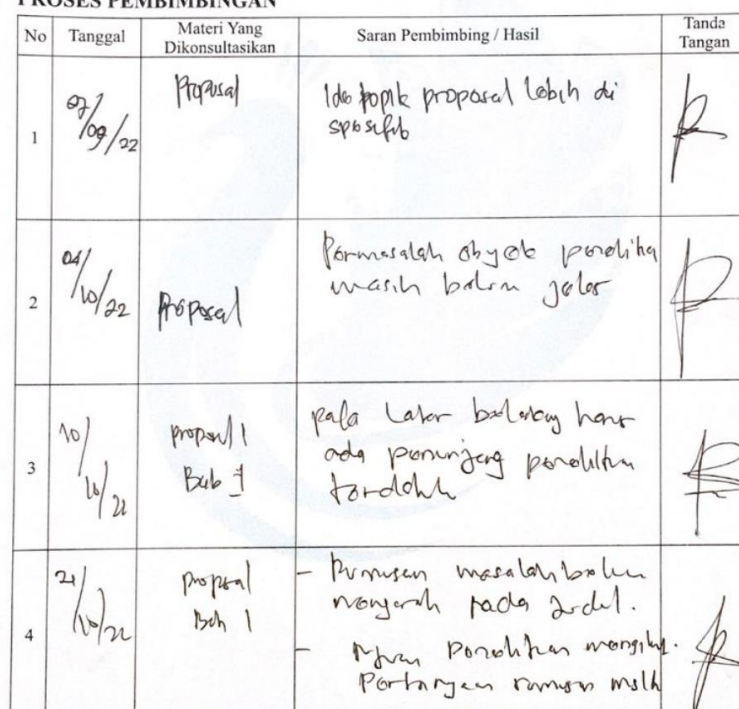 PROSES PEMBIMBINGAN
No Tanggal Materi Yang Dikonsultasikan Saran Pembimbing / Hasil Tanda Tangan
1 /09/22 Proposal Ide topik proposal lebih di
spesifik
2 04/10/22 Proposal Permasalah obyek
masih belum jelas
3 10/10/22 proposal Bab 1 pada Latar belakang harus
ada penunjang penelitian
terdahulu
4 21/10/22 proposal Bab 1 - Rumusan masalah belum
mengarah pada judul.
- Tujuan Penelitian
Pertanyaan rumusan